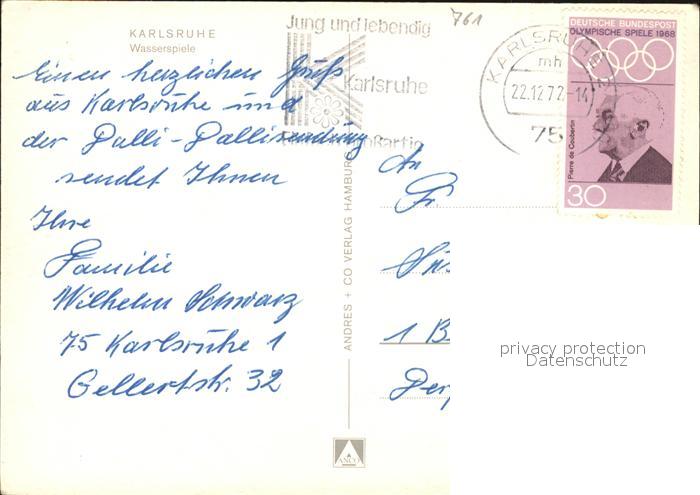 KARLSRUHE
Wasserspiele
Jung und lebendig
Karlsruhe
761
KARLSRUHE
mh
22.12.72-14
75
DEUTSCHE BUNDESPOST
OLYMPISCHE SPIELE 1968
Pierre de Coubertin
30
Einen herzlichen Gruß
aus Karlsruhe und
der Dalli-Dallisendung
sendet Ihnen
Ihre
Familie
Wilhelm Schwarz
75 Karlsruhe 1
Gellertstr. 32
ANDRES + CO VERLAG HAMBURG
ANCO
An
Fr.
1 B
privacy protection
Datenschutz